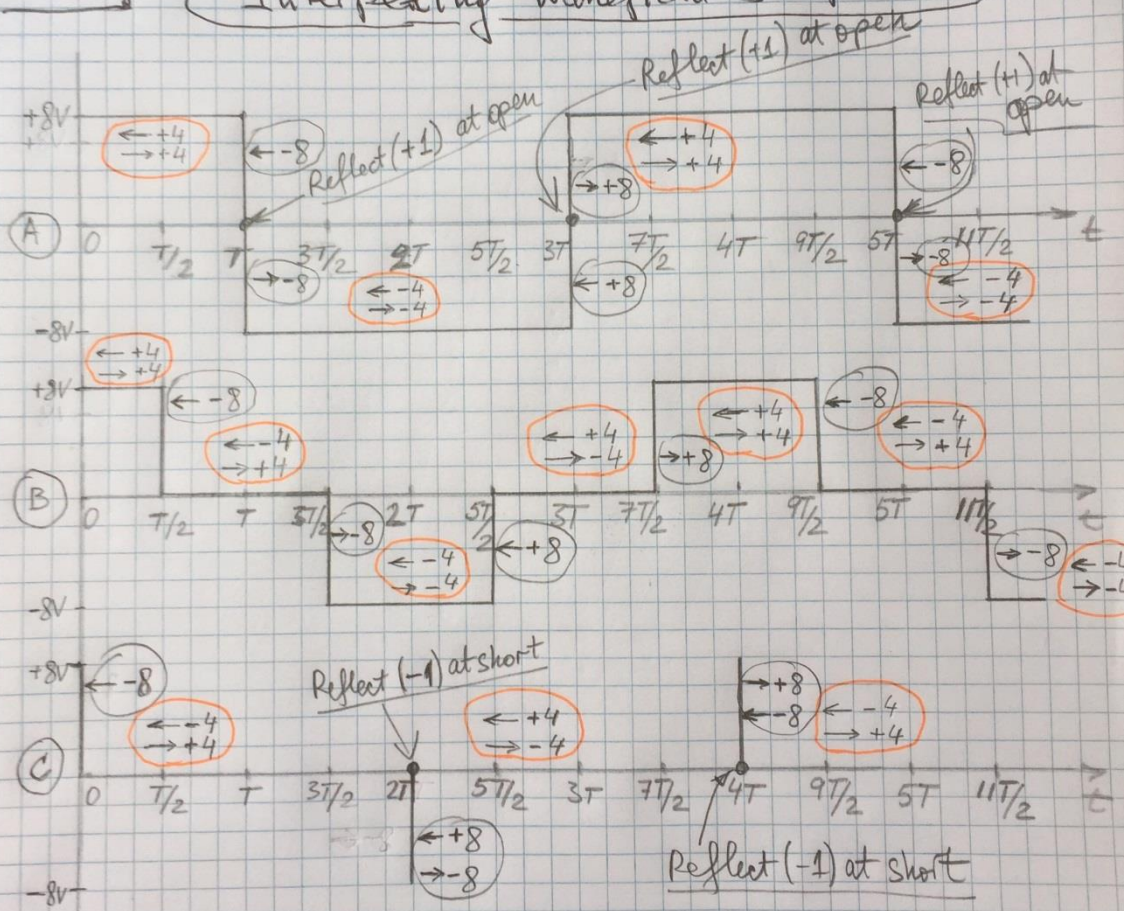 Reflect (+1) at open
Reflect (+1) at open
Reflect (+1) at open
+8V
← +4
→ +4
← -8
← +4
→ +4
→ +8
← -8
A
0 T/2 T 3T/2 2T 5T/2 3T 7T/2 4T 9T/2 5T 11T/2 t
→ -8
← -4
→ -4
← +8
→ -8
← -4
→ -4
-8V
← +4
→ +4
+8V
← -8
← -4
→ +4
← +4
→ -4
→ +8
← +4
→ +4
← -8
← -4
→ +4
B
0 T/2 T 3T/2 2T 5T/2 3T 7T/2 4T 9T/2 5T 11T/2 t
→ -8
← -4
→ -4
← +8
→ -8
← -4
→ -4
-8V
+8V
← -8
← -4
→ +4
Reflect (-1) at short
← +4
→ -4
→ +8
← -8
← -4
→ +4
C
0 T/2 T 3T/2 2T 5T/2 3T 7T/2 4T 9T/2 5T 11T/2 t
← +8
→ -8
Reflect (-1) at short
-8V